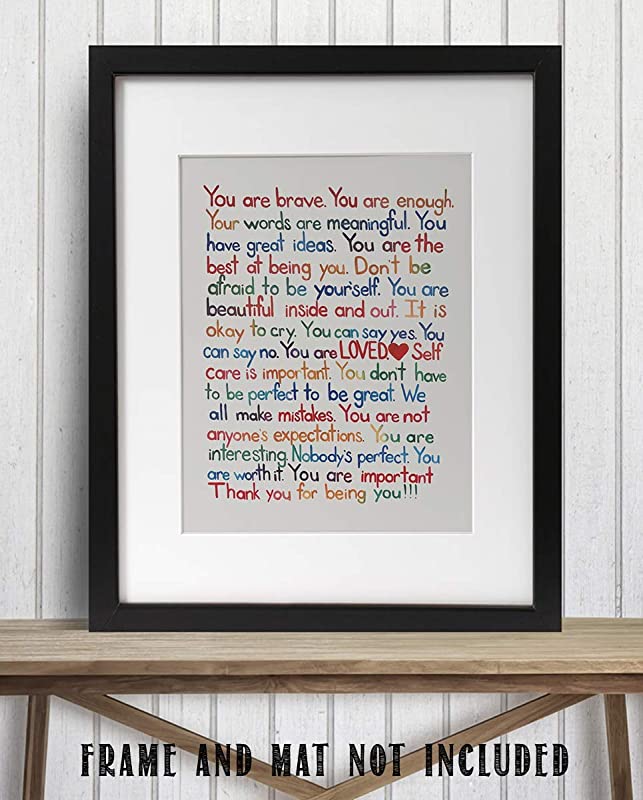 You are brave. You are enough.
Your words are meaningful. You
have great ideas. You are the
best at being you. Don't be
afraid to be yourself. You are
beautiful inside and out. It is
okay to cry. You can say yes. You
can say no. You are LOVED. Self
care is important. You don't have
to be perfect to be great. We
all make mistakes. You are not
anyone's expectations. You are
interesting. Nobody's perfect. You
are worth it. You are important
Thank you for being you!!!
FRAME AND MAT NOT INCLUDED